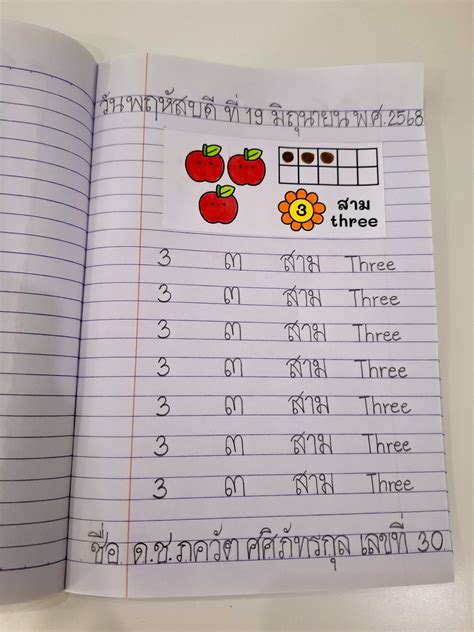 วันพฤหัสบดี ที่ 19 มิถุนายน พ.ศ.2568
3 สาม
three
3 ๓ สาม Three
3 ๓ สาม Three
3 ๓ สาม Three
3 ๓ สาม Three
3 ๓ สาม Three
3 ๓ สาม Three
3 ๓ สาม Three
ชื่อ ด.ช.ภควัต ศศิภัทรกุล เลขที่ 30